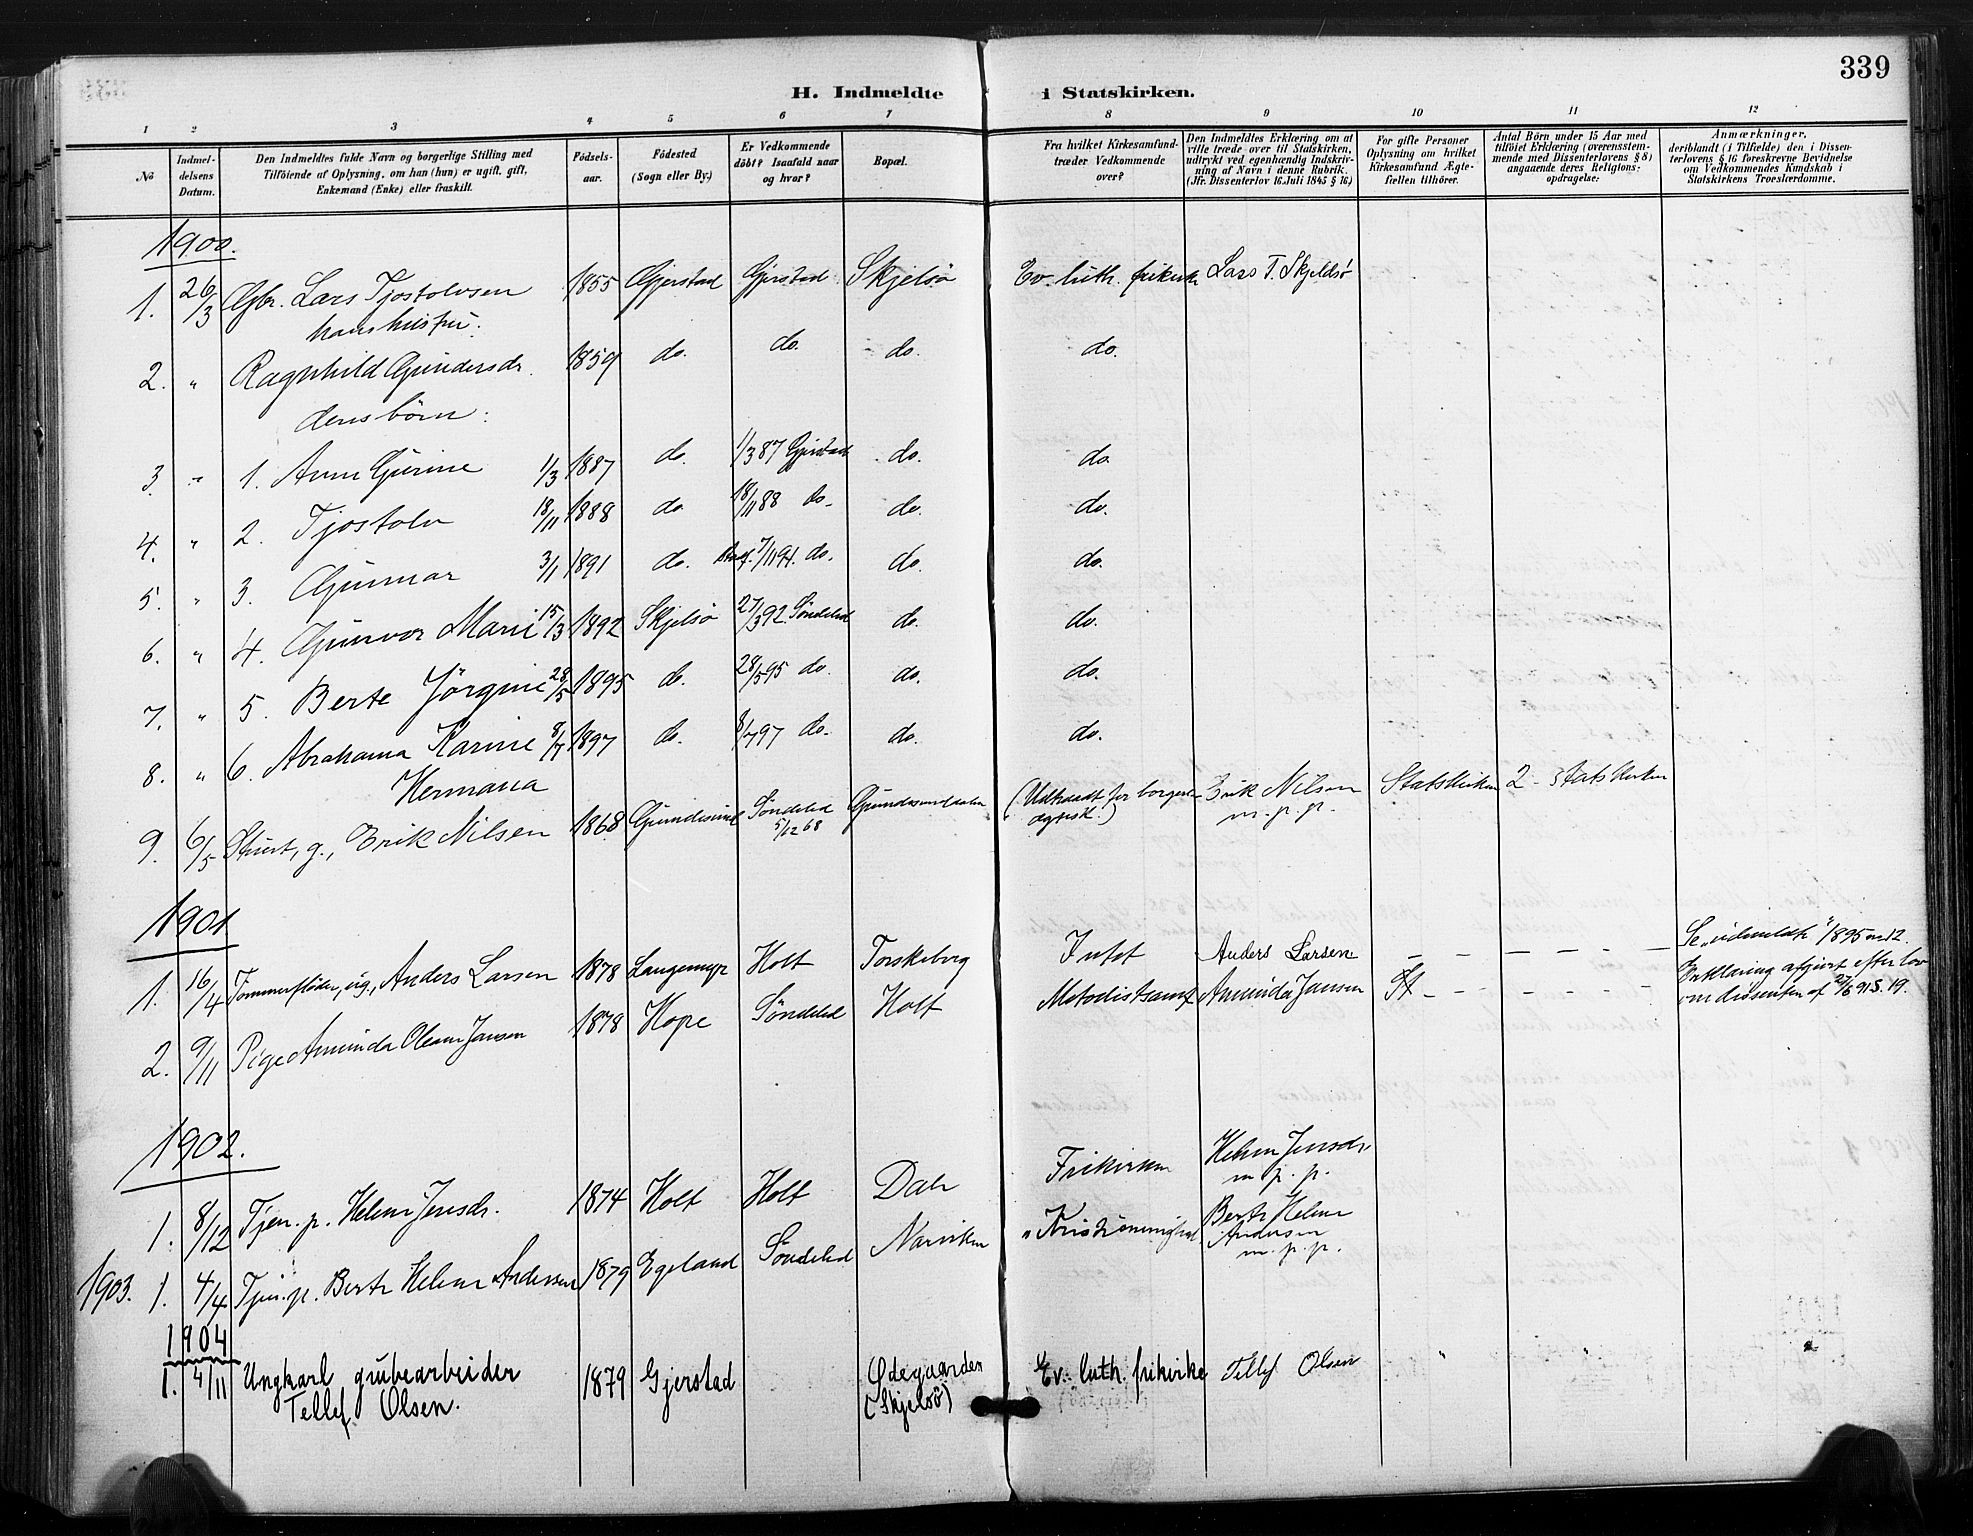 339
H. Indmeldte i Statskirken.
1 2 3 4 5 6 7 8 9 10 11 12
No
Indmel-
delsens
Datum.
Den Indmeldtes fulde Navn og borgerlige Stilling med
Tilföiende af Oplysning, om han (hun) er ugift, gift,
Enkemand (Enke) eller fraskilt.
Födsels-
aar.
Födested
(Sogn eller By.)
Er Vedkommende
döbt? Isaafald naar
og hvor?
Bopæl.
Fra hvilket Kirkesamfund
træder Vedkommende
over?
Den Indmeldtes Erklæring om at
ville træde over til Statskirken,
udtrykt ved egenhændig Indskriv-
ning af Navn i denne Rubrik.
(Jfr. Dissenterlov 16 Juli 1845 § 16)
For gifte Personer
Oplysning om hvilket
Kirkesamfund Ægte-
fællen tilhörer.
Antal Börn under 15 Aar med
tilföiet Erklæring (overensstem-
mende med Dissenterlovens § 8)
angaaende deres Religions-
opdragelse.
Anmærkninger,
deriblandt (i Tilfælde) den i Dissen-
terlovens § 16 foreskrevne Bevidnelse
om Vedkommendes Kundskab i
Statskirkens Troeslærdomme.
1900.
1. 26/3 Gbr. Lars Tjostolvsen 1855 Gjerstad Gjerstad Skjelsö Ev. luth. frikirke Lars T. Skjeldsö
hans hustru:
2. " Ragnhild Gundersdr. 1859 do. do. do. do.
deres börn:
3. " 1. Anne Gurine 1/3 1887 do. 1/3 87 Gjerstad do. do.
4. " 2. Tjostolv 18/11 1888 do. 18/11 88 do. do. do.
5. " 3. Gunnar 3/1 1891 do. 7/11 91. do. do. do.
6. " 4. Gunvor Marie 15/3 1892 Skjelsö 27/3 92 Söndeled do. do.
7. " 5. Berte Jörgine 28/5 1895 do. 28/5 95 do. do. do.
8. " 6. Abrahama Karine 8/7 1897 do. 8/7 97 do. do. do.
Hermana
9. 6/5 g., Erik Nilsen 1868 Söndeled (Udtraadt for borgerlig Erik Nilsen Statskirken 2 - Statskirken
5/12 68 m. p. p.
1901
1. 16/4 Tømmerfløder, ug., Anders Larsen 1878 Langemyr Holt Torskeberg Intet Anders Larsen — — — — — Se "udmeldte" 1895 no 12.
2. 9/11 Pige Amunda Oleane Jansen 1878 Hope Söndeled Holt Metodistsamf. Amunda Jansen St — — — — — Erklæring afgivet efter lov
om dissenter af 27/6 91 S. 19.
1902.
1. 8/12 Tjen. p. Helene Jensdr. 1874 Holt Holt Dale Frikirken Helene Jensdr.
m. p. p.
1903. 1. 4/4 Tjen. p. Berte Helene Andersen 1879 Egeland Söndeled Narviken Berte Helene
Andersen
m. p. p.
1904
1. 4/11 Ungkarl grubearbeider 1879 Gjerstad Ødegaarden Ev. luth. frikirke Tellef Olsen "
Tellef Olsen. (Skjelsö)